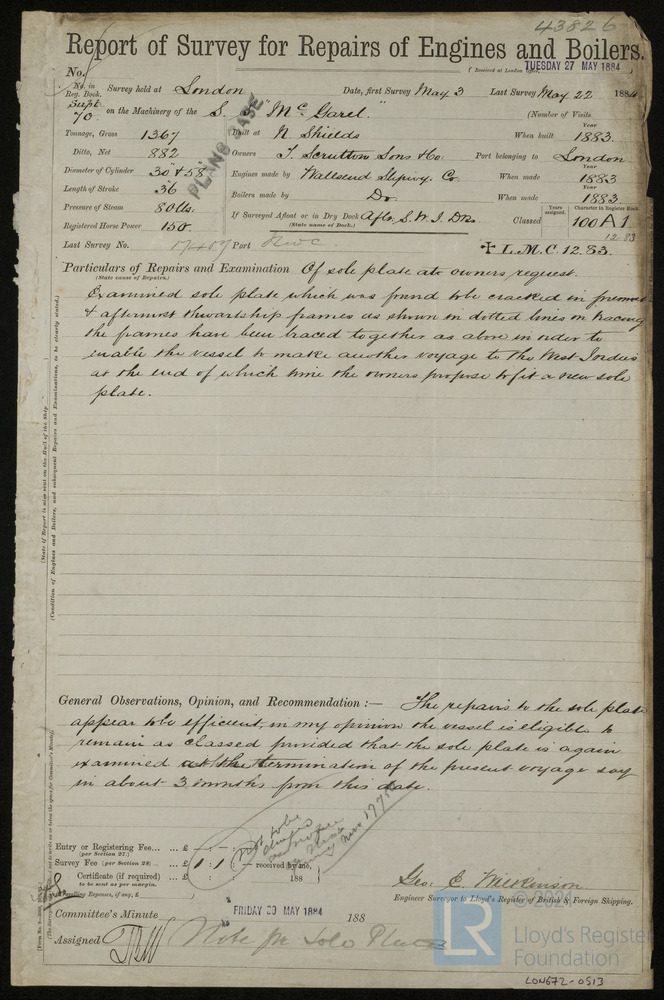 43826
Report of Survey for Repairs of Engines and Boilers.
TUESDAY 27 MAY 1884
No.
(Received at London Office,
No. in Reg. Book. Survey held at London Date, first Survey May 3 Last Survey May 22 1884
Supt. 70 on the Machinery of the S. S. "Mc Garel" (Number of Visits
PLANS CASE
Tonnage, Gross 1367 Built at N. Shields When built 1883
Ditto, Net 882 Owners T. Scrutton Sons & Co. Port belonging to London
Diameter of Cylinder 30" & 58" Engines made by Wallsend Slipway Co. When made 1883
Length of Stroke 36 Boilers made by Do. When made 1883
Pressure of Steam 80 lbs.
Registered Horse Power 150. If Surveyed Afloat or in Dry Dock Aflo. S. W. I. Dks. Classed 100 A1
(State name of Dock.)
Years assigned. Character in Register Book.
12.83
Last Survey No. Port
L.M.C. 12.83.
Particulars of Repairs and Examination Of sole plate at owners request.
(State cause of Repairs.)
Examined sole plate which was found to be cracked in foremost
& aftermost thwartship frames as shown in dotted lines on tracing
the frames have been braced together as above in order to
enable the vessel to make another voyage to the West Indies
at the end of which time the owners propose to fit a new sole
plate.
(State if Report is also sent on the Hull of the Ship
(Condition of Engines and Boilers, and subsequent Repairs and Examinations, to be clearly stated.)
General Observations, Opinion, and Recommendation :— The repairs to the sole plate
appear to be efficient, in my opinion the vessel is eligible to
remain as classed provided that the sole plate is again
examined at the termination of the present voyage say
in about 3 months from this date.
Entry or Registering Fee... ... £ - : - :
(per Section 27.)
Survey Fee (per Section 28) .. ... £ 1 : 1 — received by me,
Certificate (if required) ... £ : 188
to be sent as per margin.
Travelling Expenses, if any, £
Geo. C. Wilkinson
Engineer Surveyor to Lloyd's Register of British & Foreign Shipping.
Committee's Minute FRIDAY 30 MAY 1884 188
Assigned Note for Sole Plate
© 2021
LR
Lloyd's Register
Foundation
LON672-0513